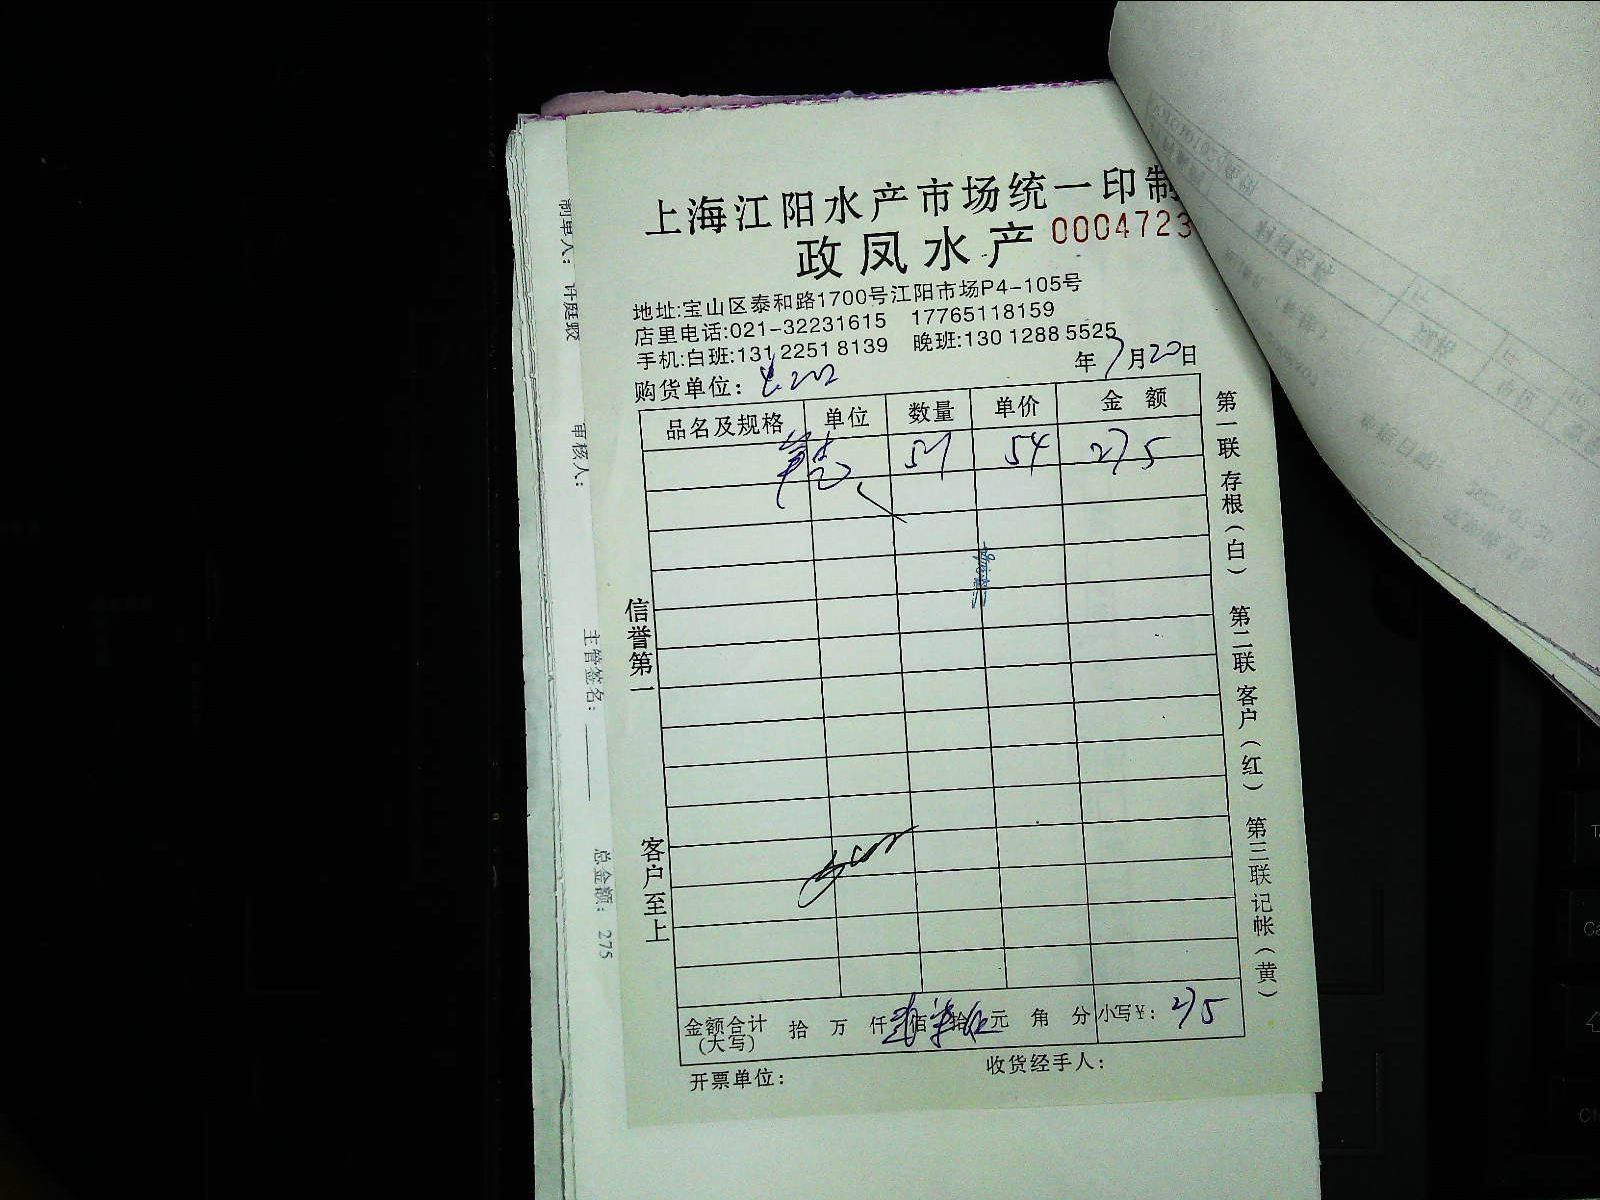 上海江阳水产市场统一印制
政凤水产 0004723
地址:宝山区泰和路1700号江阳市场P4-105号
店里电话:021-32231615 17765118159
手机:白班:131 2251 8139 晚班:130 1288 5525
年7月20日
购货单位:
品名及规格 单位 数量 单价 金额
51 54 275
金额合计(大写) 拾 万 仟 佰 拾 元 角 分 小写¥: 275
开票单位: 收货经手人:
信誉第一
客户至上
第一联 存根(白) 第二联 客户(红) 第三联 记帐(黄)
制单人: 许庭 审核人: 主管签名: 总金额: 275